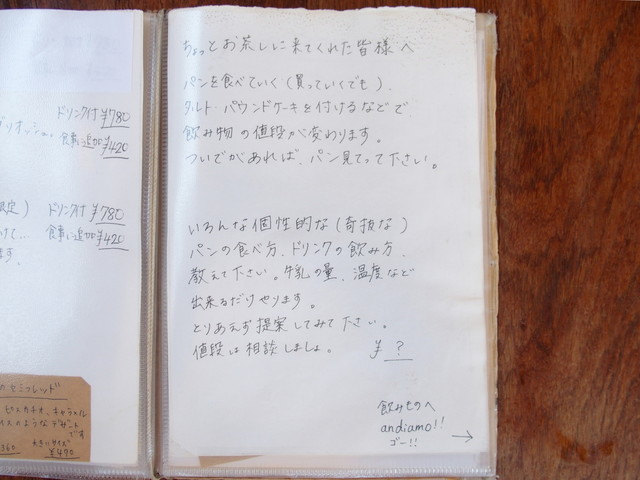 ドリンク付 ¥780
食事に追加 ¥420
限定) ドリンク付 ¥780
けて… 食事に追加 ¥420
ます。
のセミフレッド
ピスタチオ、キャラメル
イスのようなデザート
です
大きいサイズ
¥470
ちょっとお茶しに来てくれた皆様へ
パンを食べていく(買っていくでも)、
タルト パウンドケーキを付けるなどで、
飲み物の値段が変わります。
ついでがあれば、パン見てって下さい。
いろんな個性的な(奇抜な)
パンの食べ方、ドリンクの飲み方、
教えて下さい。牛乳の量、温度など
出来るだけやります。
とりあえず提案してみて下さい。
値段は相談しましょ。 ¥ ?
飲みものへ
andiamo!!
ゴー!! →